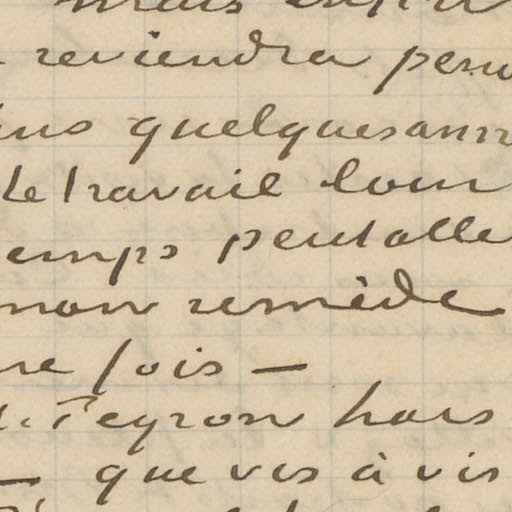 mais enfin
reviendra peu
ans quelques ann
le travail loin
emps peutalle
mon remède
ne fois —
r. Peyron hors
— que vis à vis